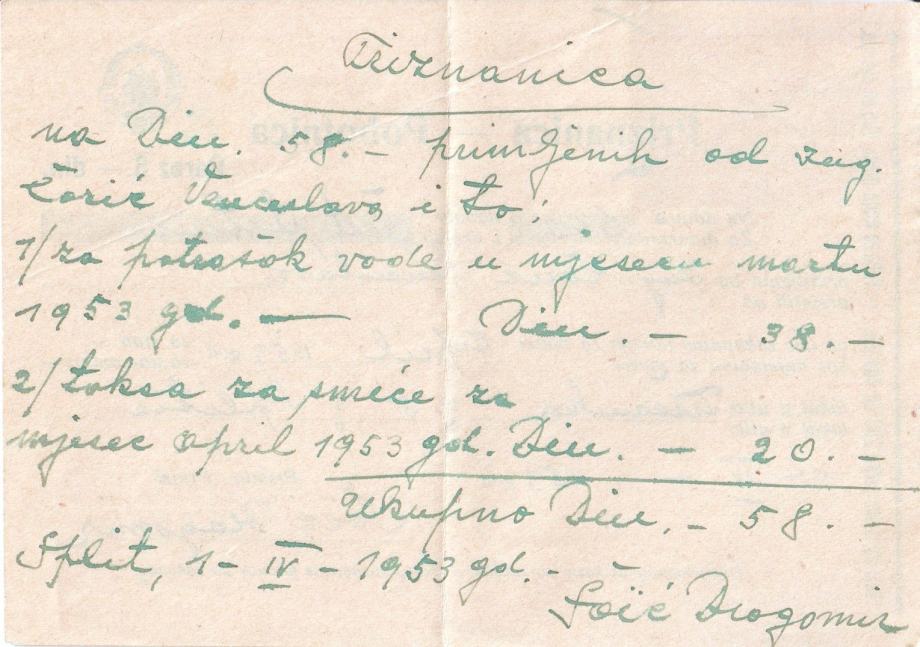 Priznanica
na Din. 58.- primljenih od zag.
Ćorić Venceslava i to:
1/ za potrošak vode u mjesecu martu
1953 god. — Din. - 38.-
2/ taksa za smeće za
mjesec april 1953 god. Din. - 20.-
Ukupno Din. - 58.-
Split, 1-IV-1953 god. -
Dragomir